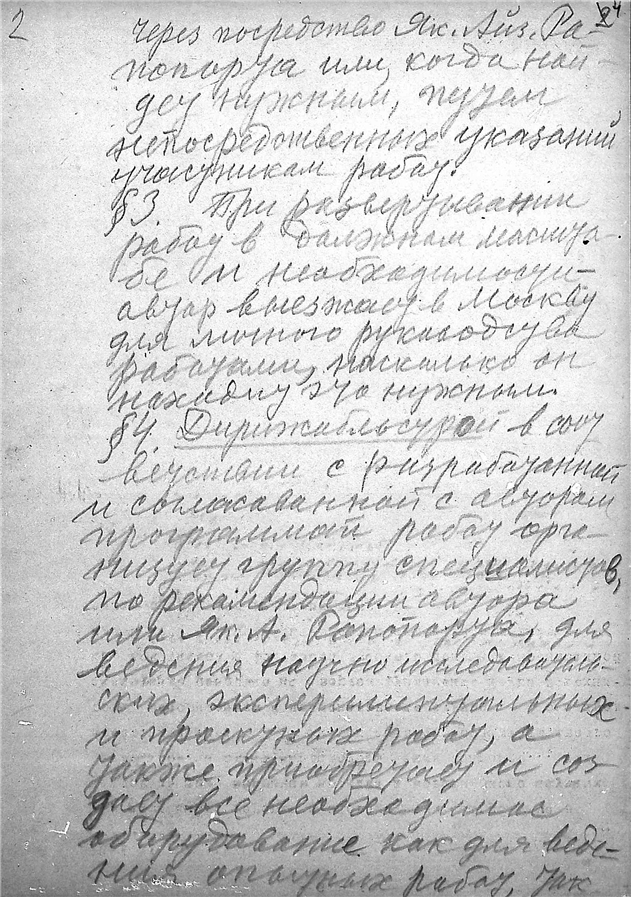 2
через посредство Як. Айз. Ра-
попорта или, когда най-
дет нужным, путем
непосредственных указаний
участникам работ.
§3. При развертывании
работ в должном масшта-
бе и необходимости
автор выезжает в Москву
для личного руководства
работами, насколько он
находит это нужным.
§4. Дирижабльстрой в соот
ветствии с разработанной
и согласованной с автором
программой работ орга-
низует группу специалистов,
по рекомендации автора
или Як. А. Рапопорта, для
ведения научно исследователь-
ских, экспериментальных
и проектных работ, а
также приобретает и соз
дает все необходимое
оборудование как для веде-
ния опытных работ, так